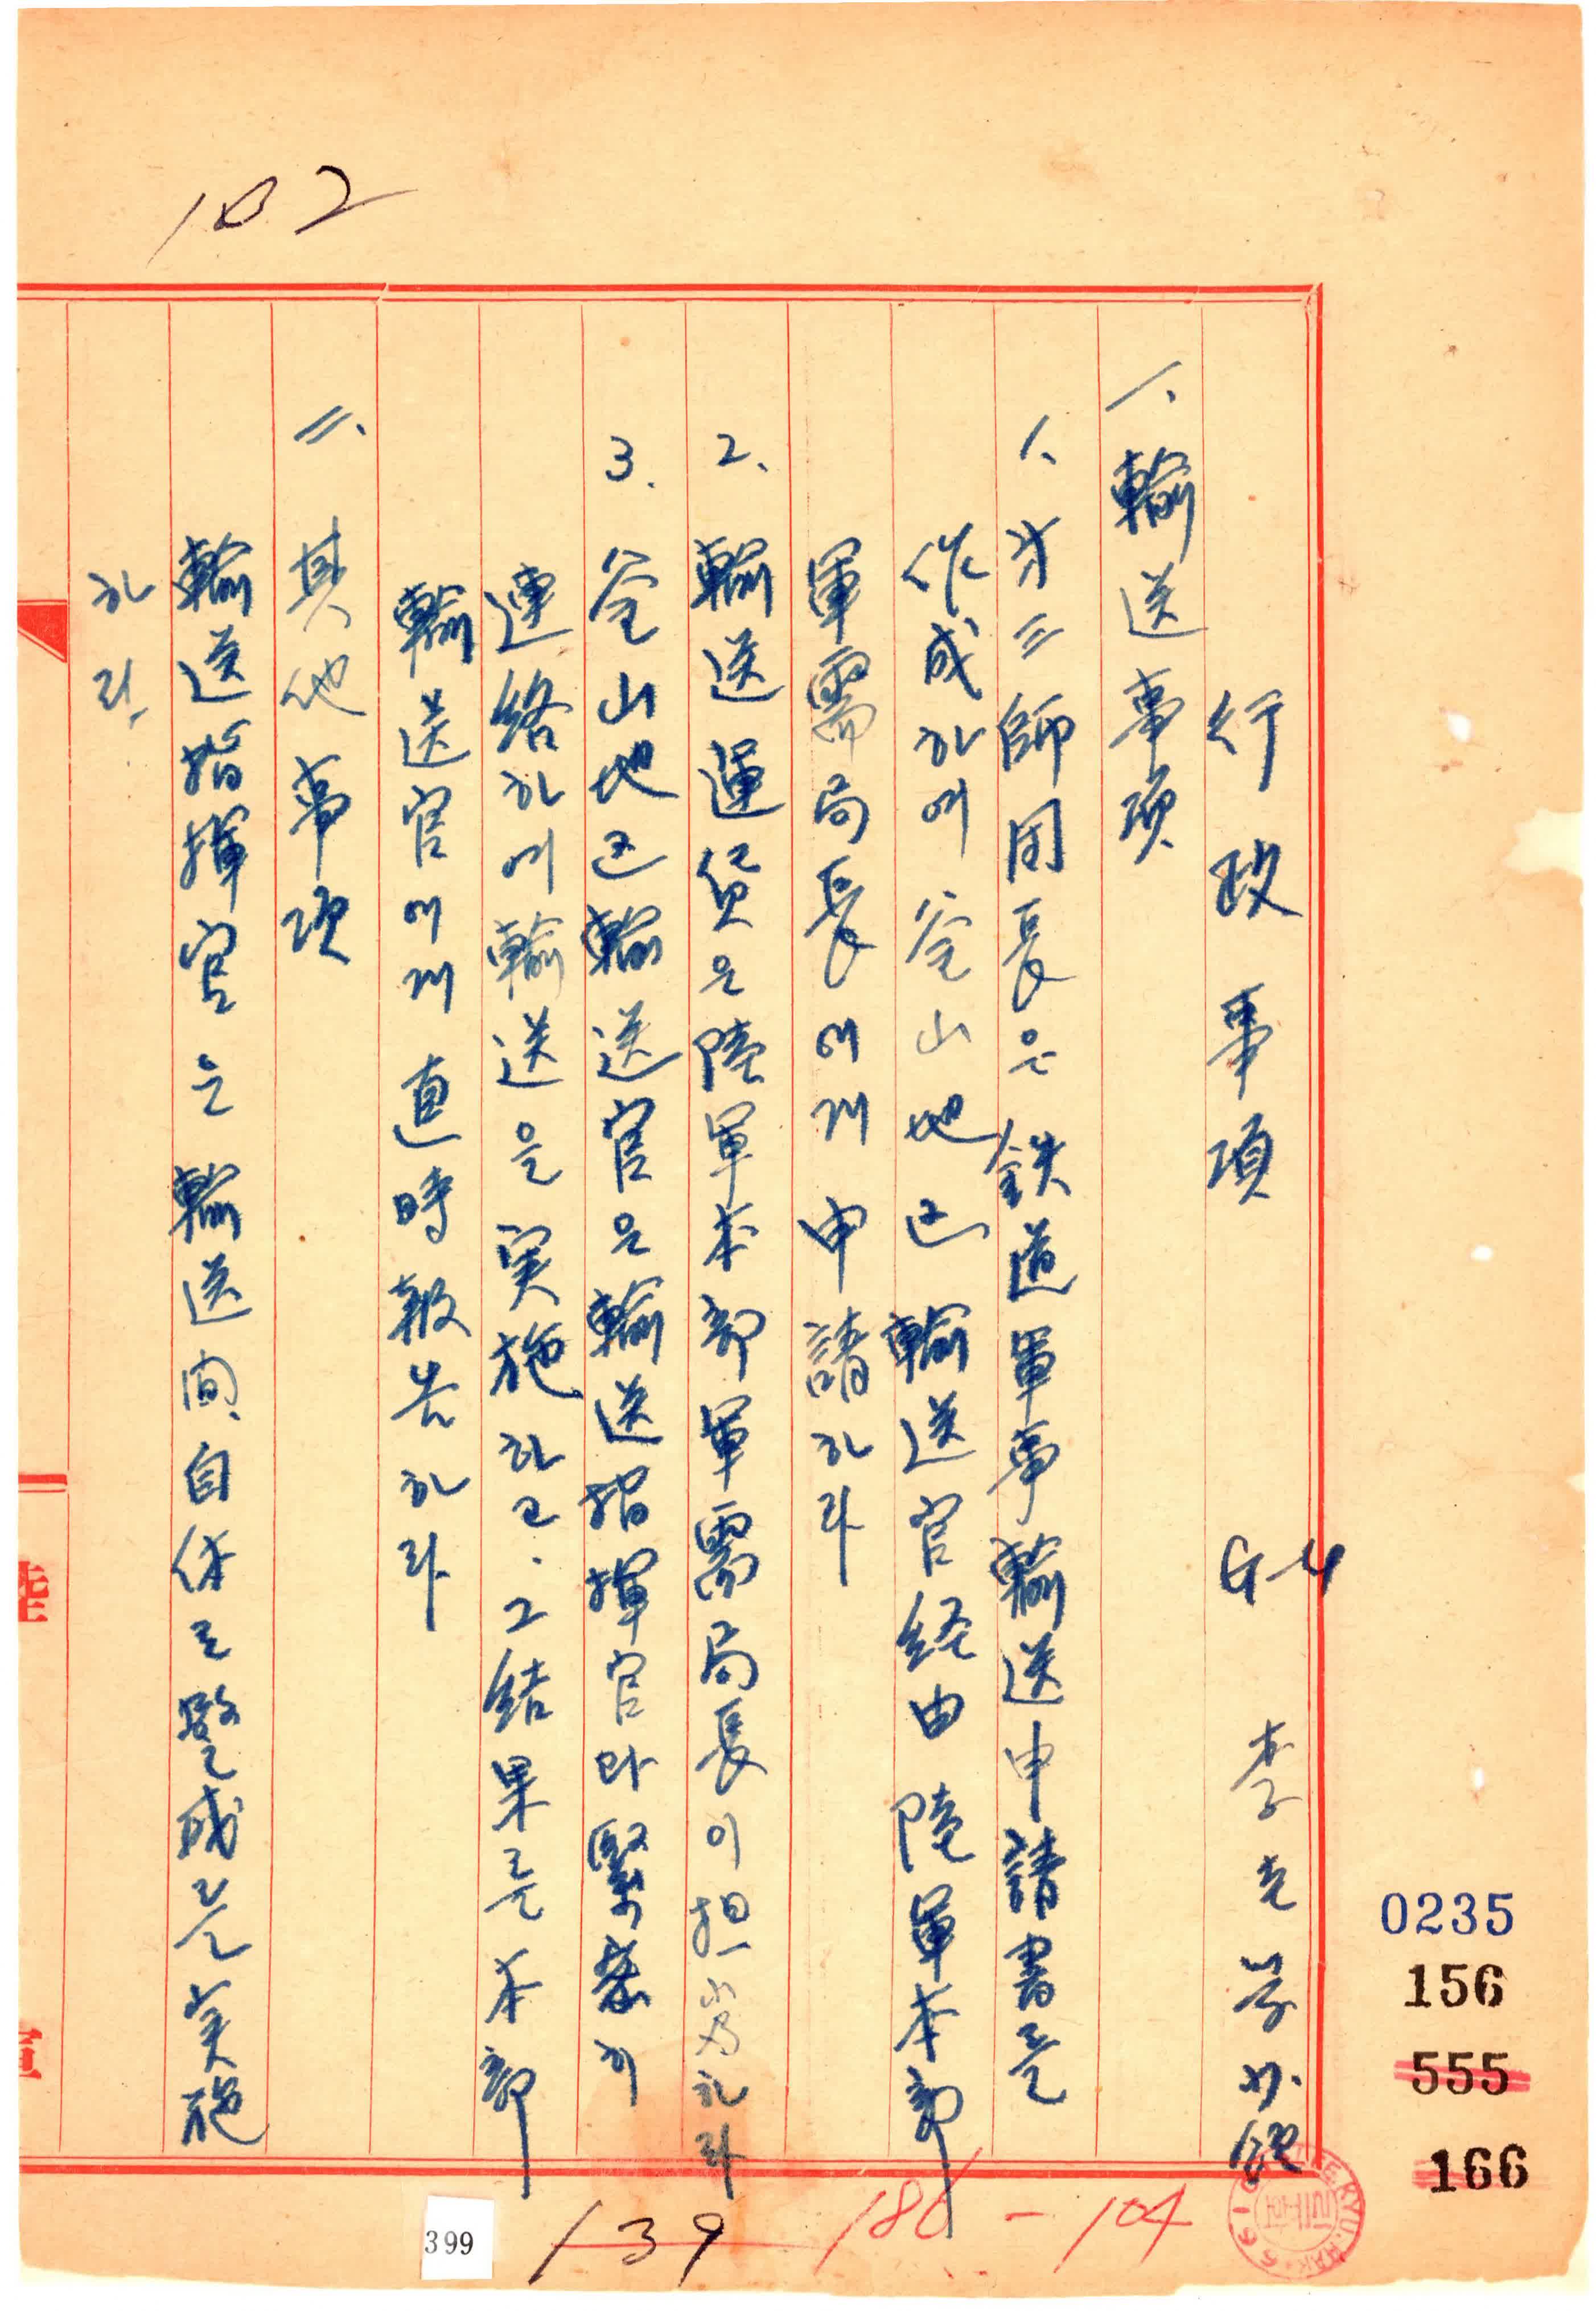 102
行政事項 G-4 李
一、輸送事項
1、才三師団長은鉄道軍事輸送申請書를
作成하여釜山地区輸送官経由 陸軍本部
軍需局長에게 申請하라
2、輸送運賃은陸軍本部軍需局長이担当하라
3. 釜山地区輸送官은輸送指揮官과緊密히
連絡하여輸送을実施하고. 그結果를本部
輸送官에게 直時報告하라
二、其他事項
輸送指揮官은 輸送间、自体로警戒를実施
하라.
0235
156
555
166
399
139
186-104